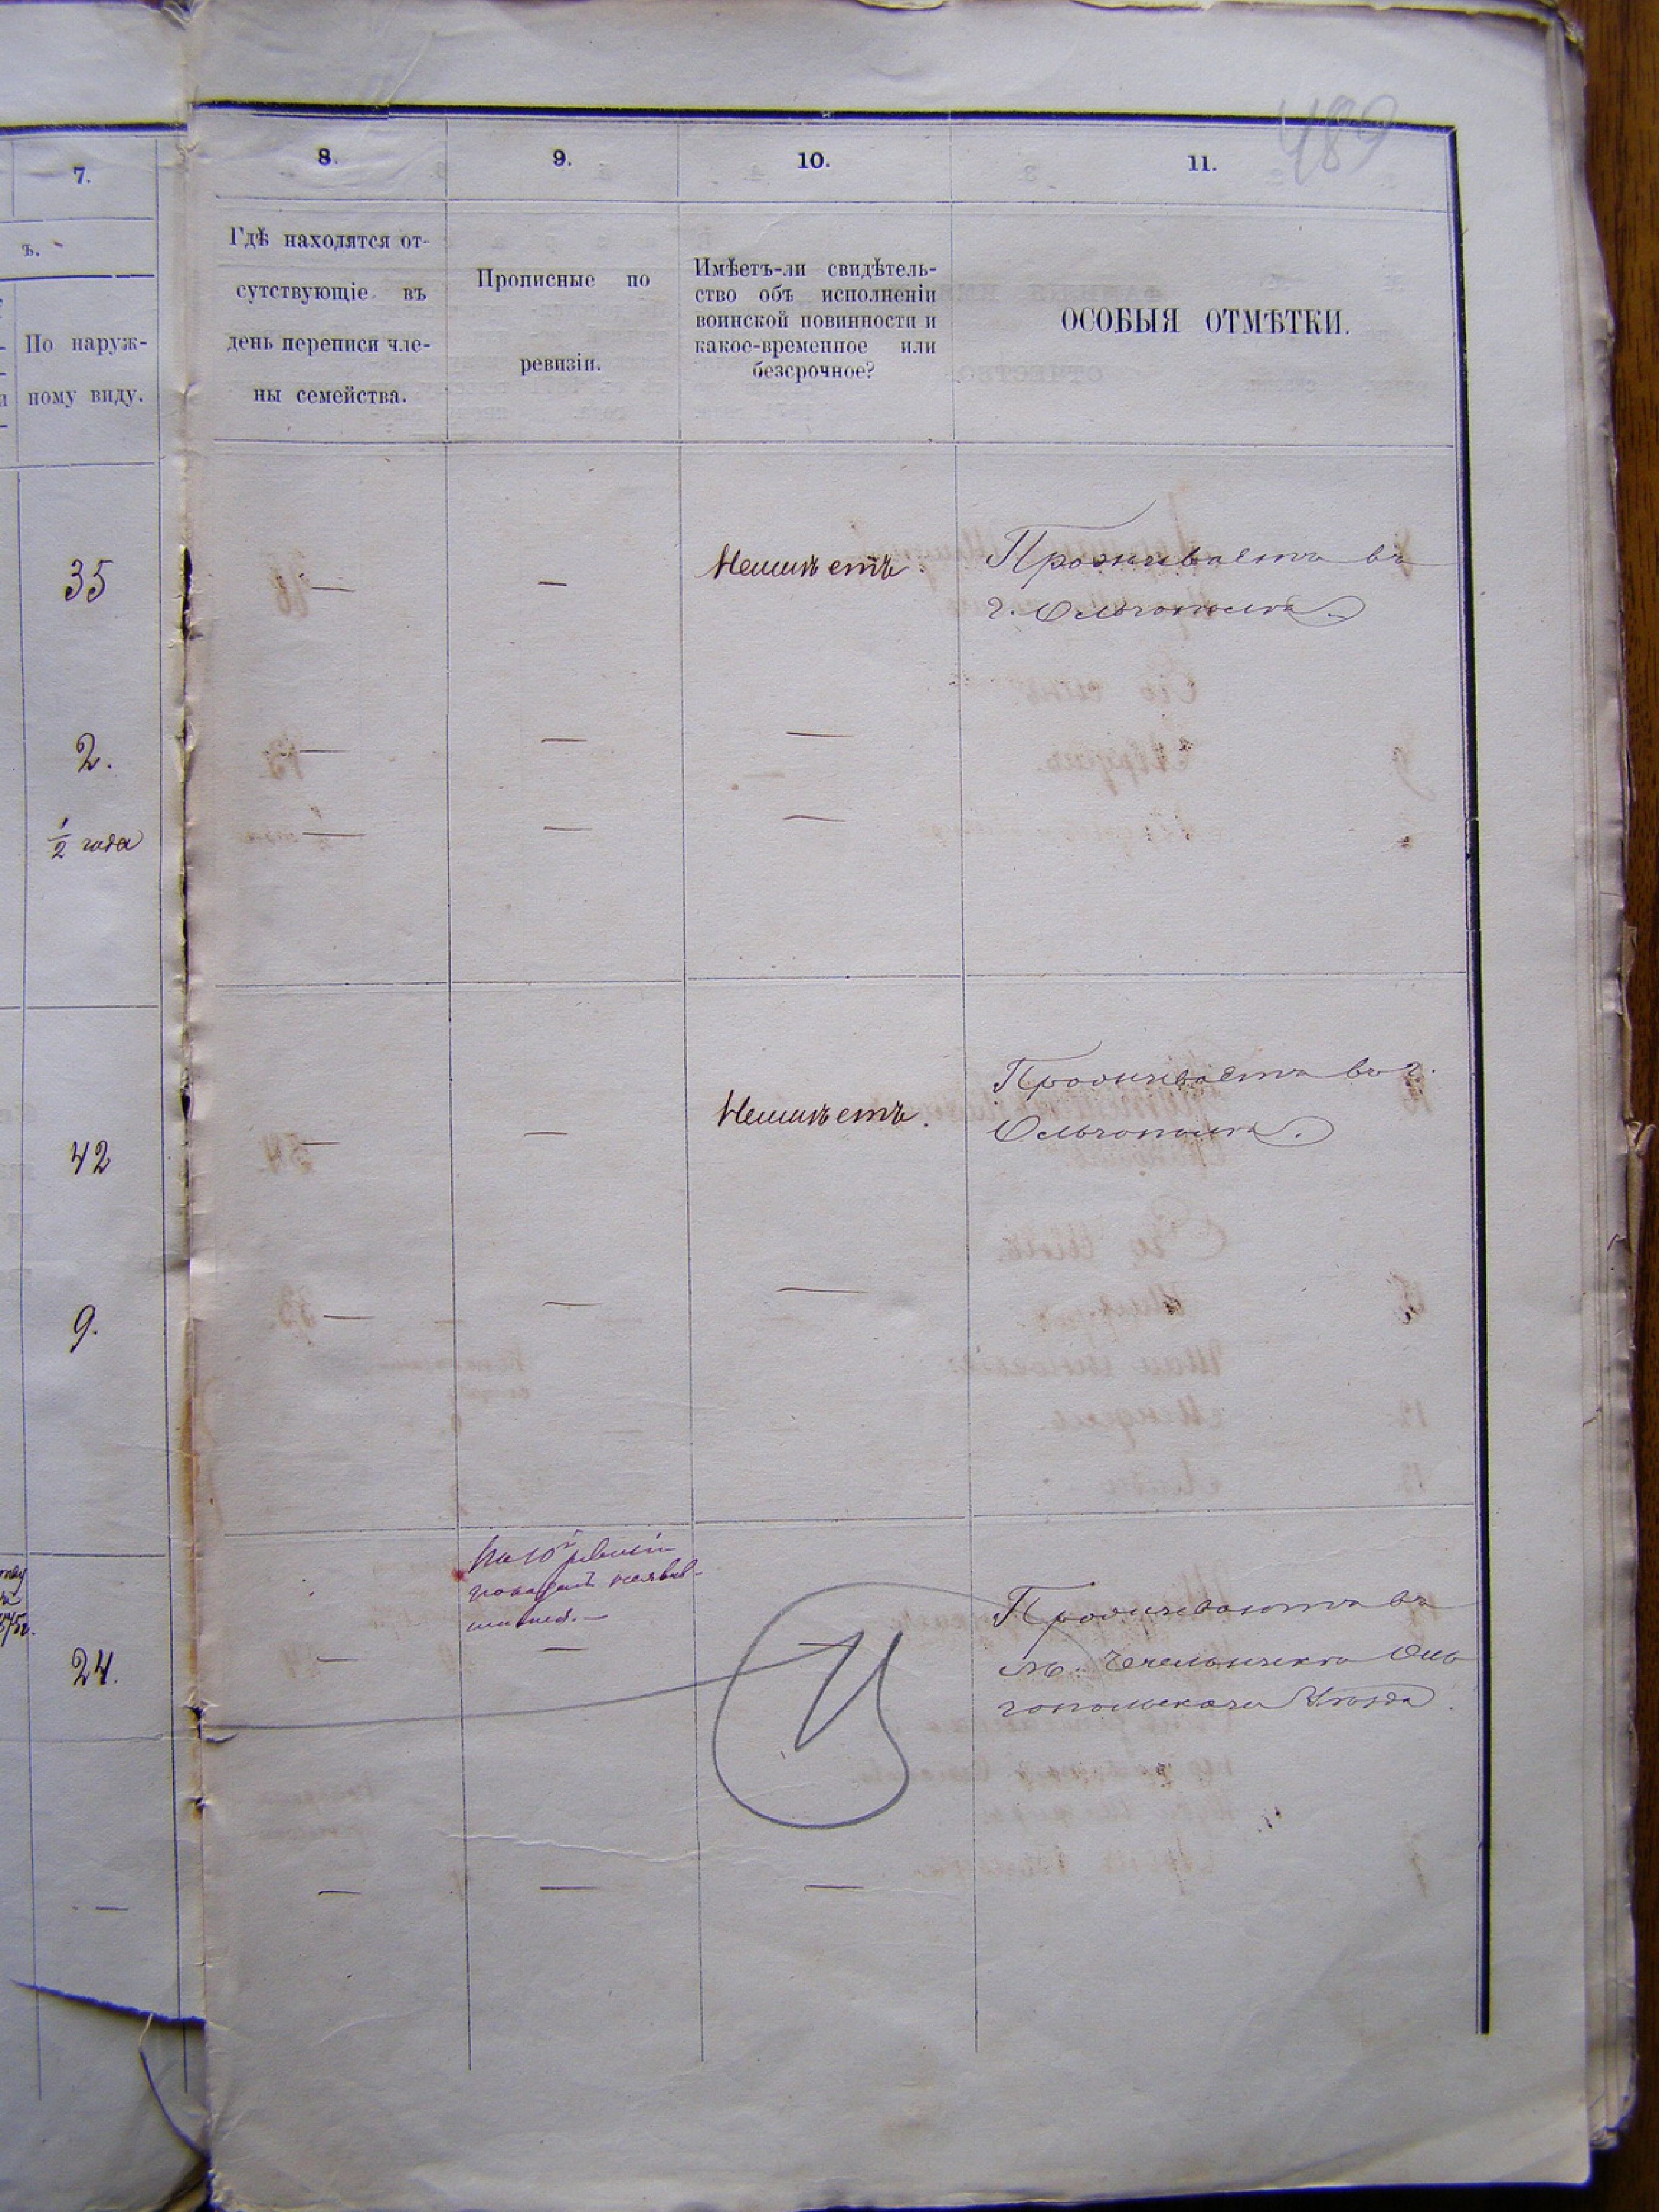 489
7.
8.
9.
10.
11.
ъ.
По наруж-
ному виду.
Гдѣ находятся от-
сутствующіе въ
день переписи чле-
ны семейства.
Прописные по
ревизіи.
Имѣетъ-ли свидѣтель-
ство объ исполненіи
воинской повинности и
какое-временное или
безсрочное?
ОСОБЫЯ ОТМѢТКИ.
35
—
—
Неимѣетъ.
Проживаетъ въ
г. Ольгополѣ
2.
—
—
—
1/2 года
—
—
—
42
—
—
Неимѣетъ.
Проживаетъ въ г.
Ольгополѣ.
9.
—
—
—
По 10й ревизіи
24.
—
—
Проживаютъ въ
м. Чечельникѣ Оль
гопольскаго Уѣзда
—
—
—
—